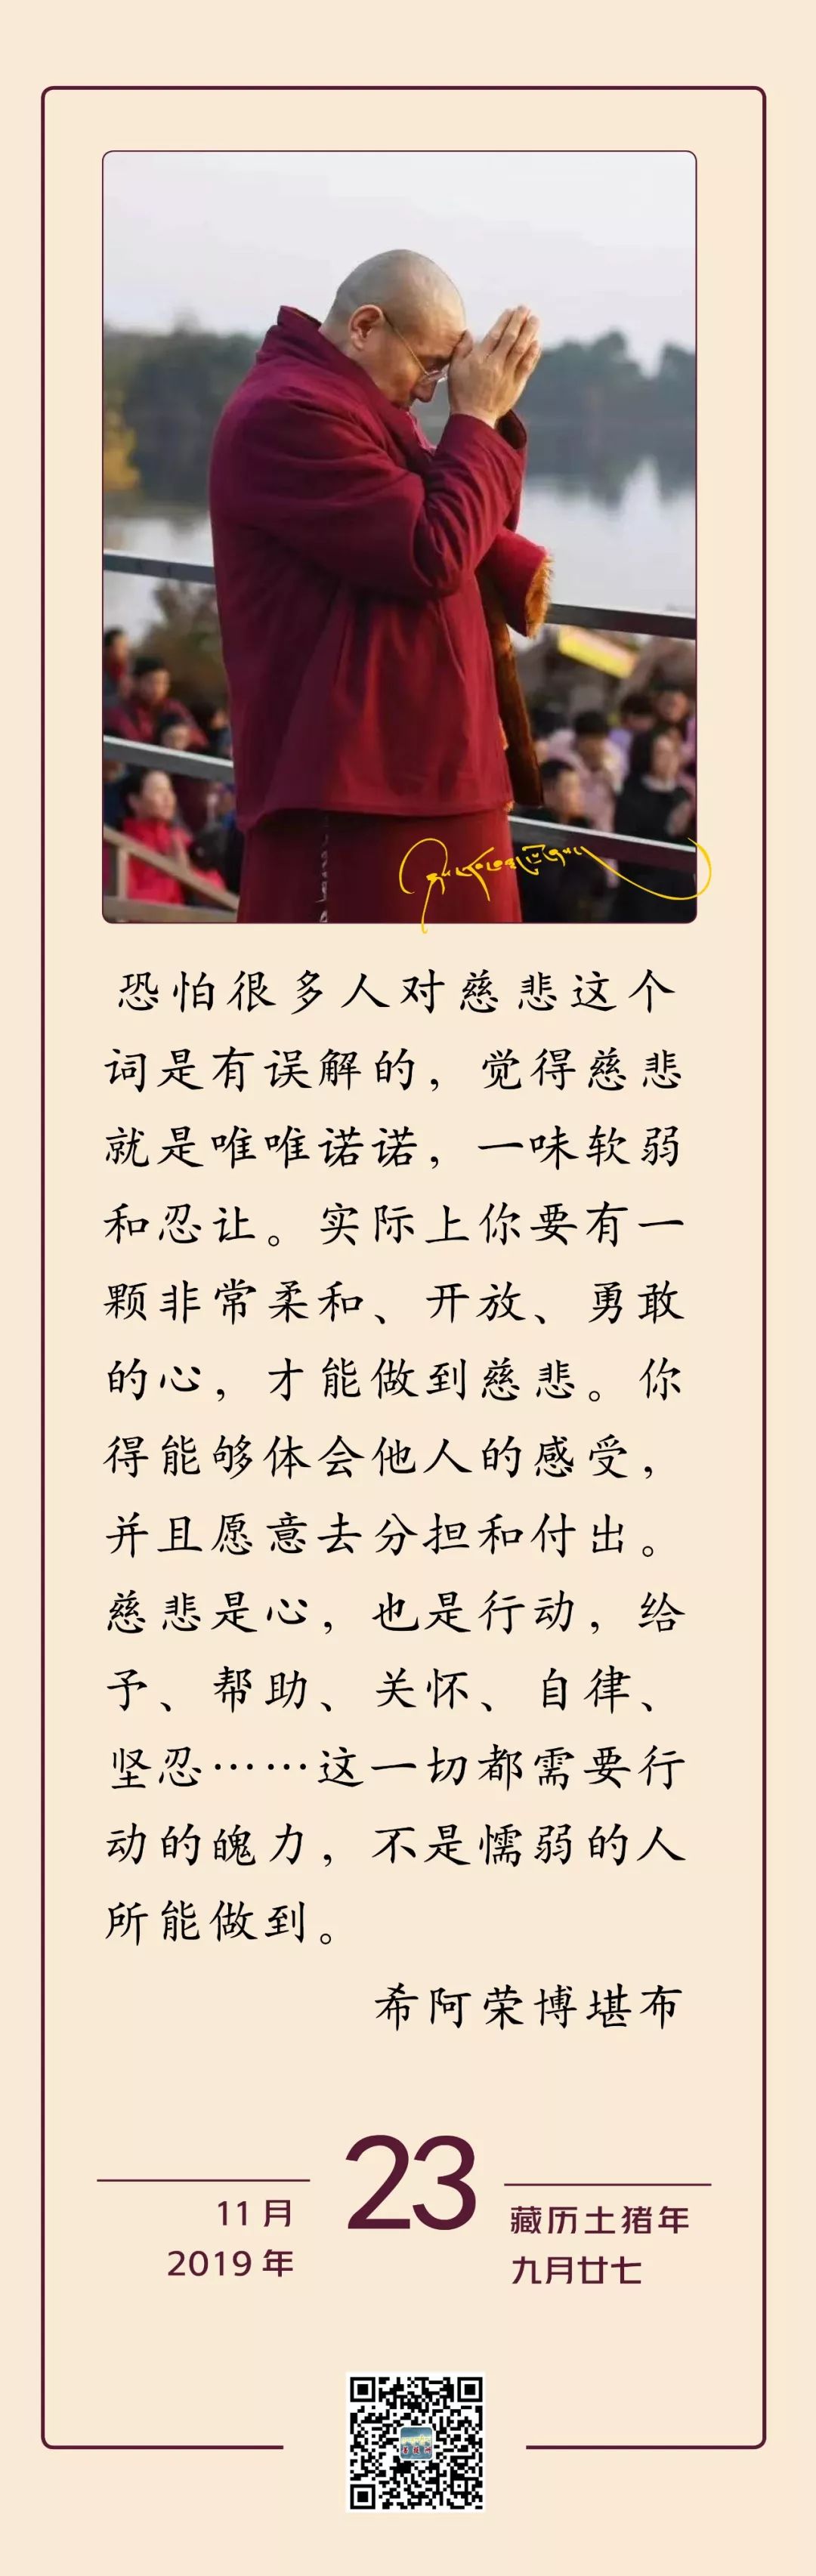 恐怕很多人对慈悲这个
词是有误解的，觉得慈悲
就是唯唯诺诺，一味软弱
和忍让。实际上你要有一
颗非常柔和、开放、勇敢
的心，才能做到慈悲。你
得能够体会他人的感受，
并且愿意去分担和付出。
慈悲是心，也是行动，给
予、帮助、关怀、自律、
坚忍……这一切都需要行
动的魄力，不是懦弱的人
所能做到。
希阿荣博堪布
11月
2019年
23
藏历土猪年
九月廿七